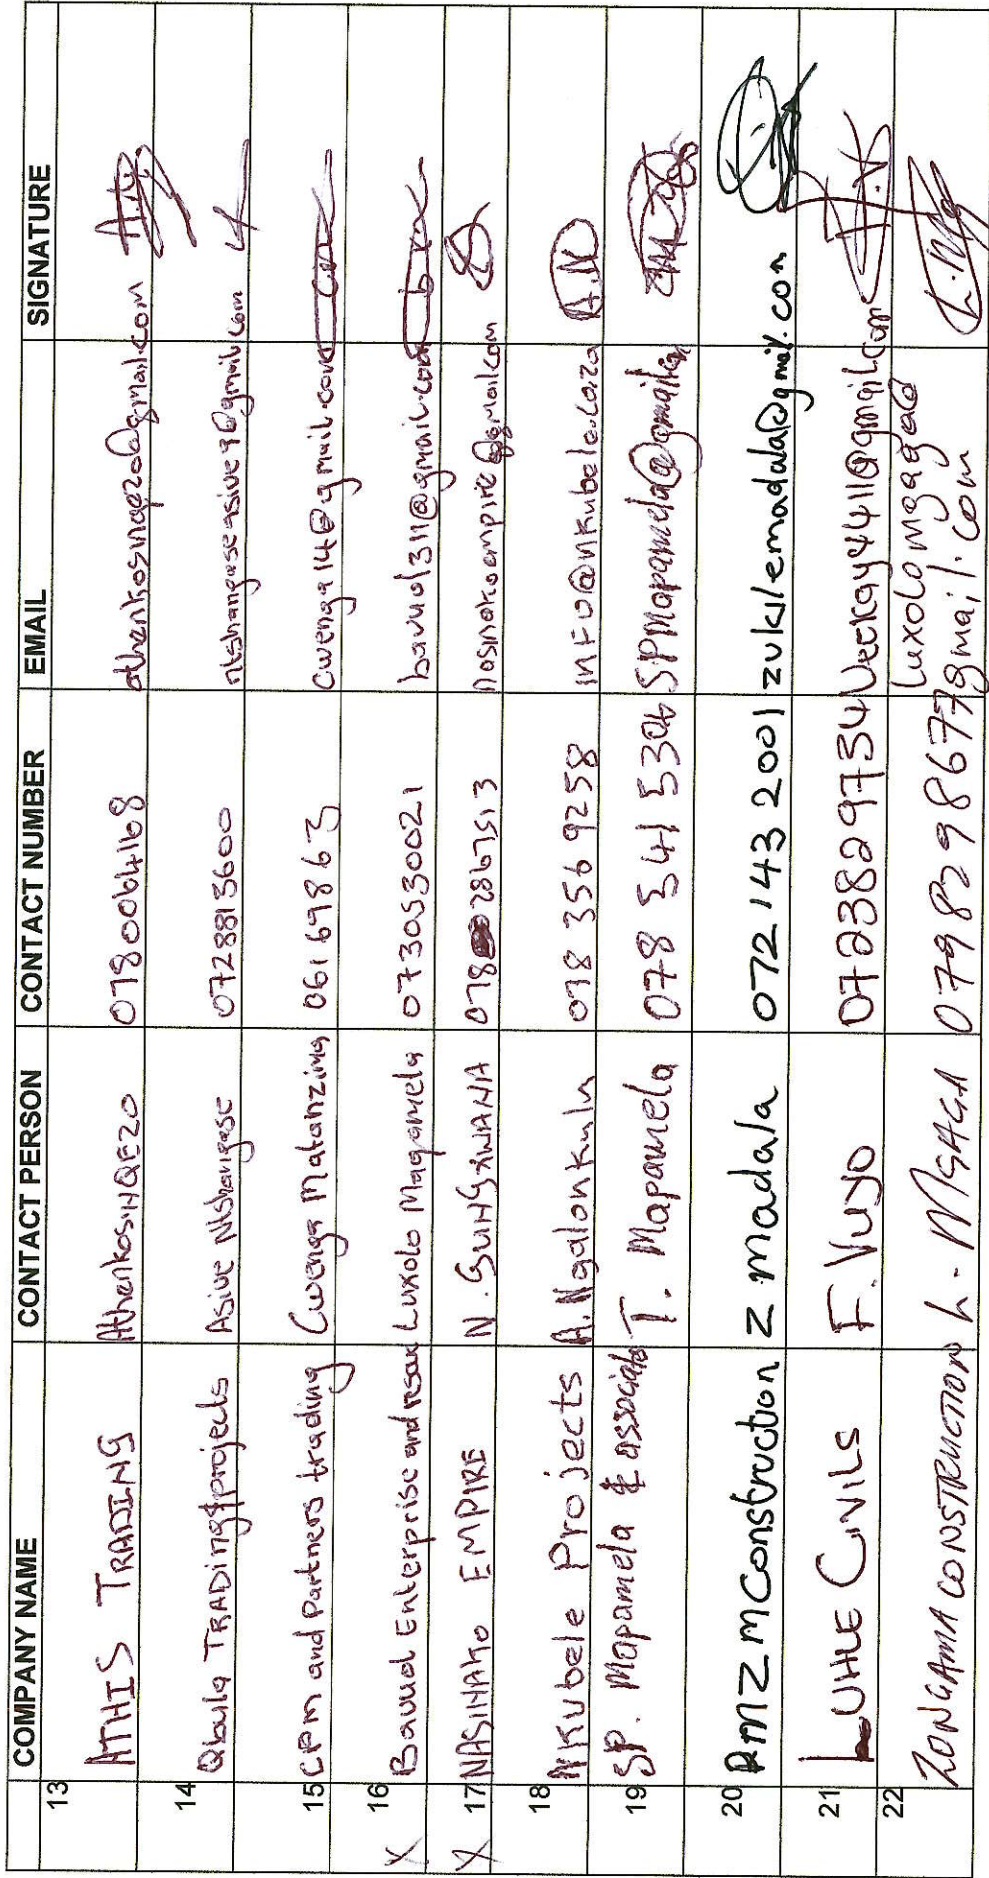 COMPANY NAME CONTACT PERSON CONTACT NUMBER EMAIL SIGNATURE
13 ATHIS TRADING AthenkosiNQEZO 0780064168 athenkosinqezo@gmail.com
14 Qbula TRADing & projects Asive Ntshangase 0728813600 ntshangaseasive98@gmail.com
15 CPM and Partners trading Cwenga Matanzima 061669863 Cwenga14@gmail.com
X 16 Bavuol Enterprise and Luxolo Magamela 0730530021 bavuol311@gmail.com
X 17 NASINAKO EMPIRE N. 078 2867513 nosinakoempire@gmail.com
18 NKubele Projects A. Ngalonkulu 078 356 9258 INFO@nkubele.co.za A.N
19 SP. Mapamela & associates T. Mapamela 078 541 5306 SPMapamela@gmail.com
20 RMZ MConstruction Z madala 072 143 2001 zukilemadala@gmail.con
21 LUHLE CIVILS F. Vuyo 0723829734 Veekay4411@gmail.com F.N
22 ZONGAMA CONSTRUCTION L. MGAGA 0798298677 luxolomgaga@
gmail.com L.Mg